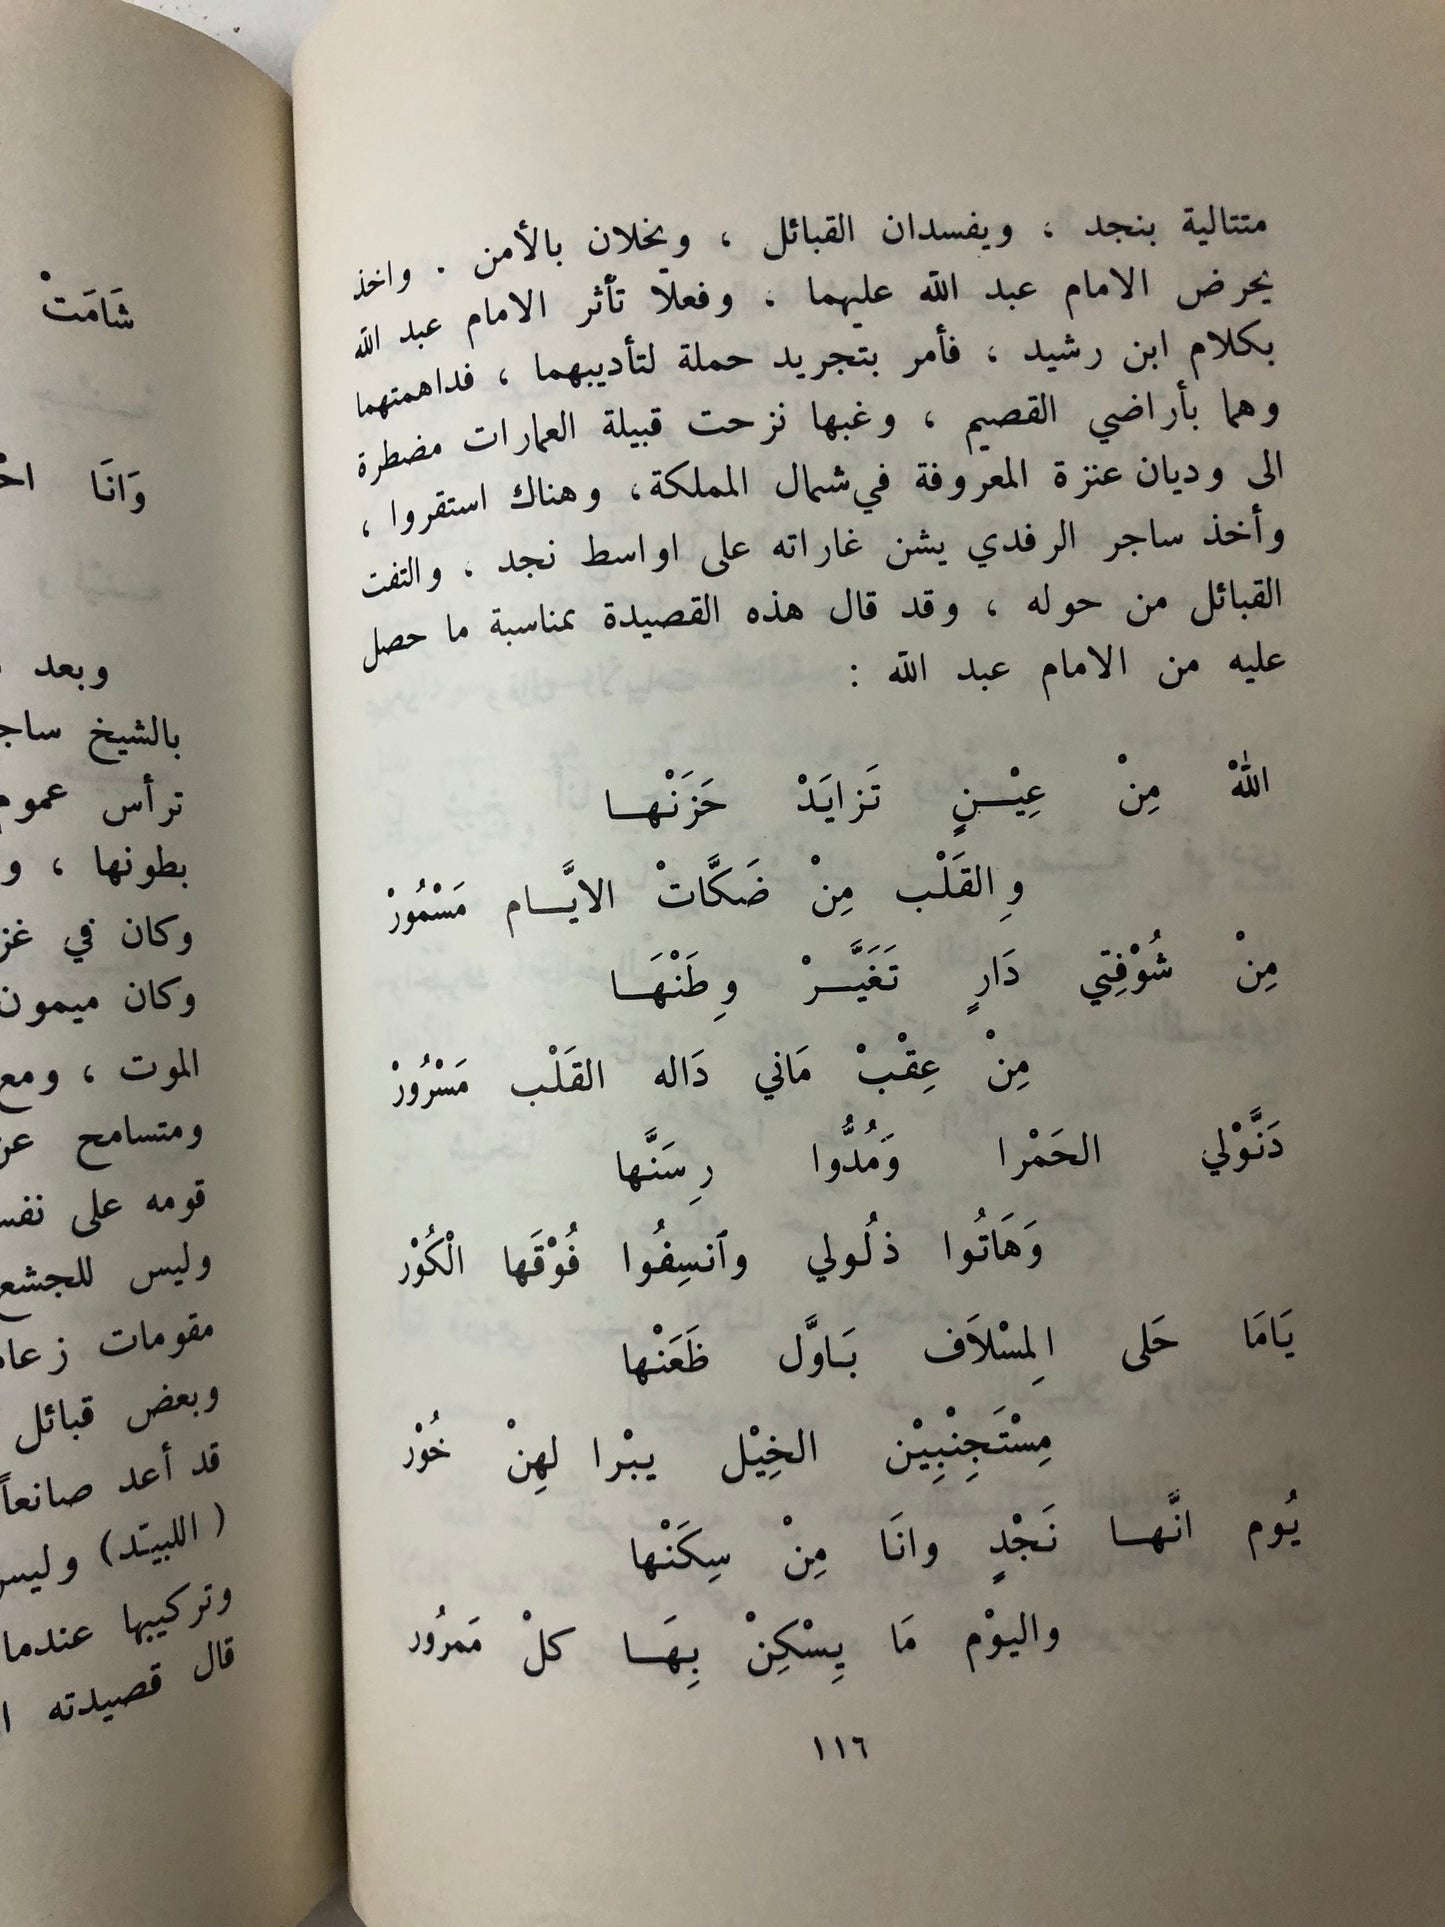 متتالية بنجد ، ويفسدان القبائل ، ويخلان بالأمن . واخذ
يحرض الامام عبد الله عليهما . وفعلاً تأثر الامام عبد الله
بكلام ابن رشيد ، فأمر بتجريد حملة لتأديبهما ، فداهمتهما
وهما بأراضي القصيم ، وغبها نزحت قبيلة العمارات مضطرة
الى وديان عنزة المعروفة في شمال المملكة، وهناك استقروا ،
وأخذ ساجر الرفدي يشن غاراته على اواسط نجد . والتفت
القبائل من حوله ، وقد قال هذه القصيدة بمناسبة ما حصل
عليه من الامام عبد الله :
اللهْ مِنْ عِيْـــنٍ تَزايَدْ حَزَنْهـــا
وِالقَلْب مِنْ ضَكَّاتْ الايَّـــام مَسْمُورْ
مِنْ شُوْفِتي دَارٍ تَغَيَّـــرْ وِطَنْهَـــا
مِنْ عِقْبْ مَاني دَاله القَلْب مَسْرُورْ
دَنَّوْلي الحَمْرا وَمُدُّوا رِسَنَّها
وَهَاتُوا ذلُولي وآنسِفُوا فُوْقَها الْكُوْر
يَامَا حَلى اِلمِسْلاَف بَـاوَّل ظَعَنْها
مِسْتَجِنْبِيْن الخِيْل يبْرا لهِنْ خُوْر
يُوم انَّهـــا نَجْدٍ وانَا مِنْ سِكَنْها
واليوْم مَا يِسْكِنْ بِهَـــا كلْ مَمرُور
١١٦
شَامَتْ
وَانَا
وبعد
بالشيخ
ترأس عموم
بطونها ، و
وكان في
وكان ميمون
الموت ، ومع
ومتسامح
قومه على
وليس للجشع
مقومات
وبعض قبائل
قد أعد صانعاً
( اللبيّد )
وتركيبها عندما
قال قصيدته